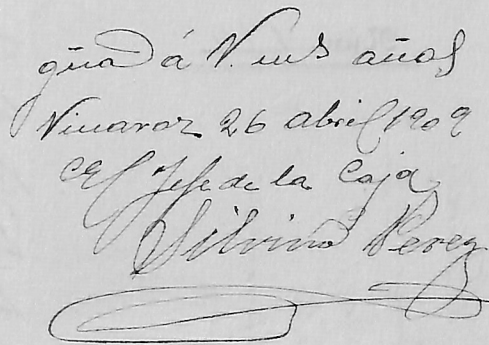 güa dá V. mˢ años
Vinaroz 26 abril 1909
El Jefe de la Caja
Silvino Perez